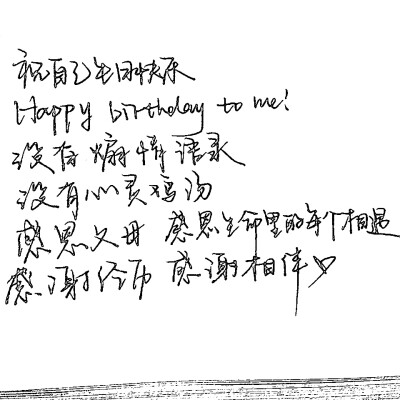 祝自己生日快乐
Happy birthday to me!
没有煽情语录
没有心灵鸡汤
感恩父母 感恩生命里的每个相遇
感谢经历 感谢相伴♡